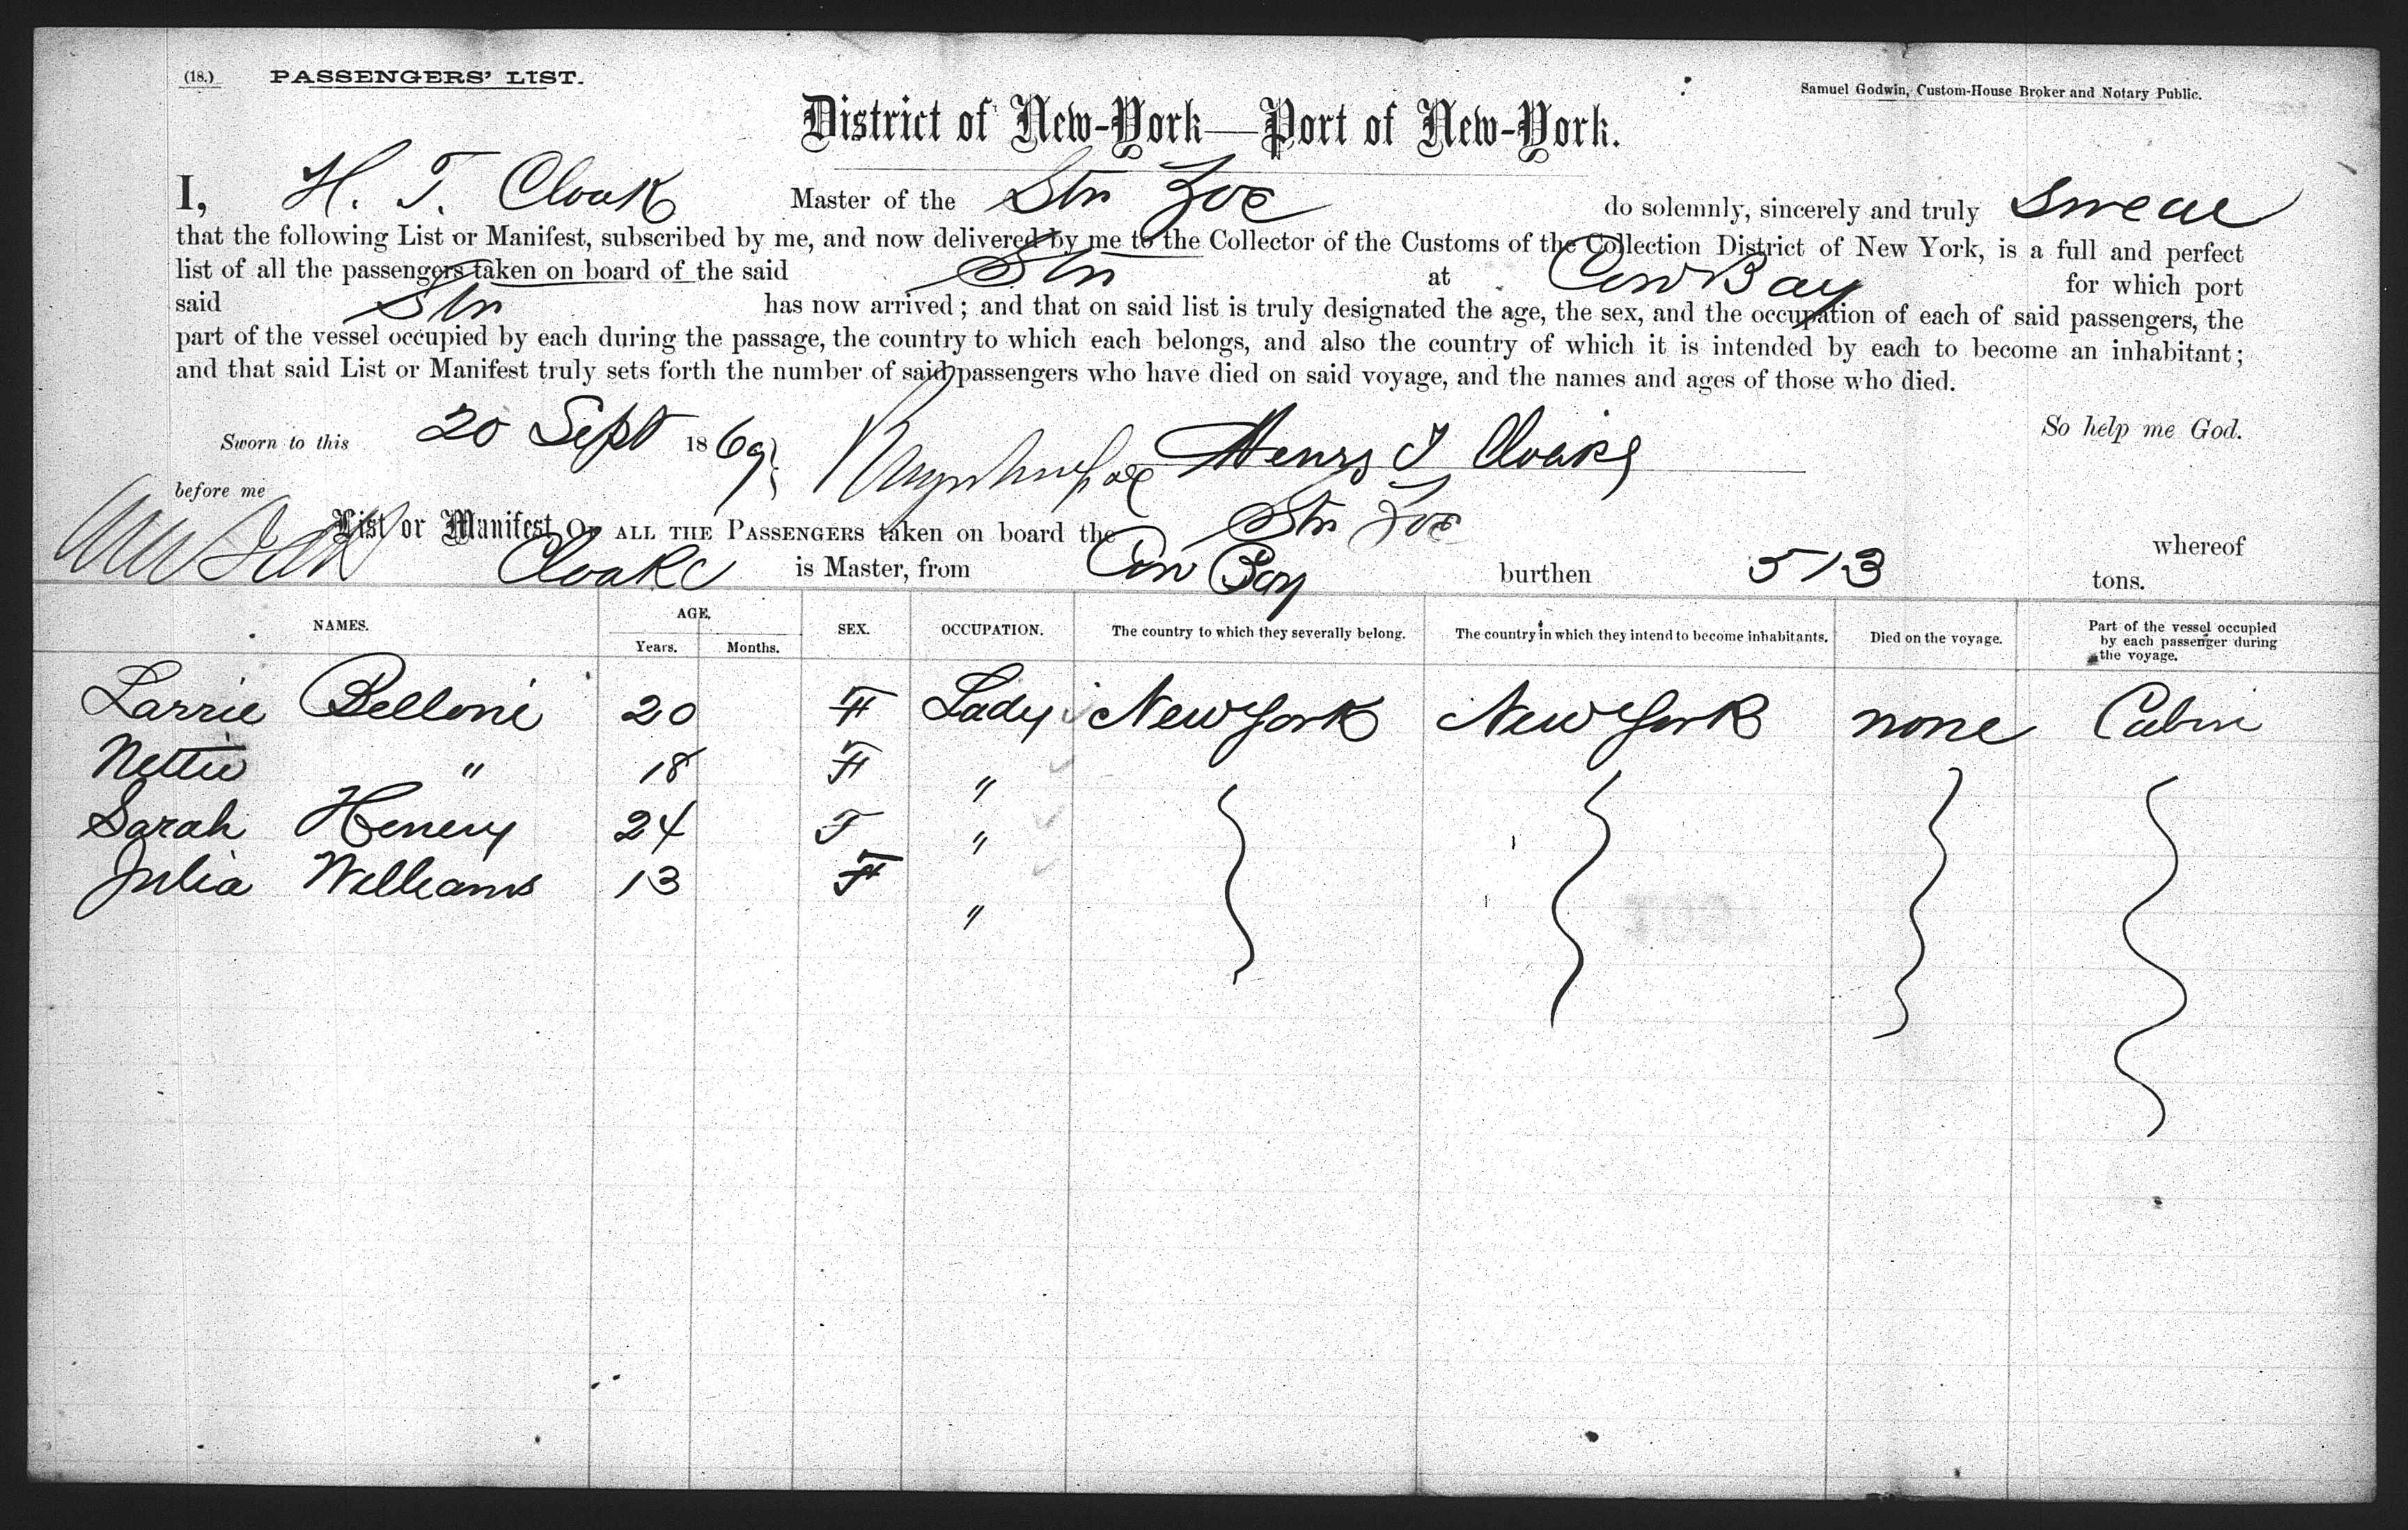 (18.) PASSENGERS' LIST.
Samuel Godwin, Custom-House Broker and Notary Public.
District of New-York—Port of New-York.
I, H. T. Cloak Master of the Str Zoe do solemnly, sincerely and truly Swear
that the following List or Manifest, subscribed by me, and now delivered by me to the Collector of the Customs of the Collection District of New York, is a full and perfect
list of all the passengers taken on board of the said Str at Cow Bay for which port
said Str has now arrived; and that on said list is truly designated the age, the sex, and the occupation of each of said passengers, the
part of the vessel occupied by each during the passage, the country to which each belongs, and also the country of which it is intended by each to become an inhabitant;
and that said List or Manifest truly sets forth the number of said passengers who have died on said voyage, and the names and ages of those who died.
So help me God.
Sworn to this 20 Sept 1869 Henry T Cloake
before me
List or Manifest OF ALL THE PASSENGERS taken on board the Str Zoe whereof
Cloake is Master, from Cow Bay burthen 513 tons.
NAMES. AGE. SEX. OCCUPATION. The country to which they severally belong. The country in which they intend to become inhabitants. Died on the voyage. Part of the vessel occupied by each passenger during the voyage.
Years. Months.
Larrie Belloni 20 F Lady New York New York none Cabin
Nettie " 18 F "
Sarah Henery 24 F "
Julia Williams 13 F "